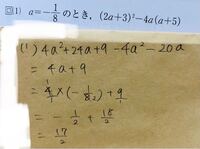 □1) a=-1/8 のとき, (2a+3)²-4a(a+5)
(1) 4a²+24a+9-4a²-20a
= 4a+9
= 4/1×(-1/8 2)+9/1
= -1/2+18/2
= 17/2